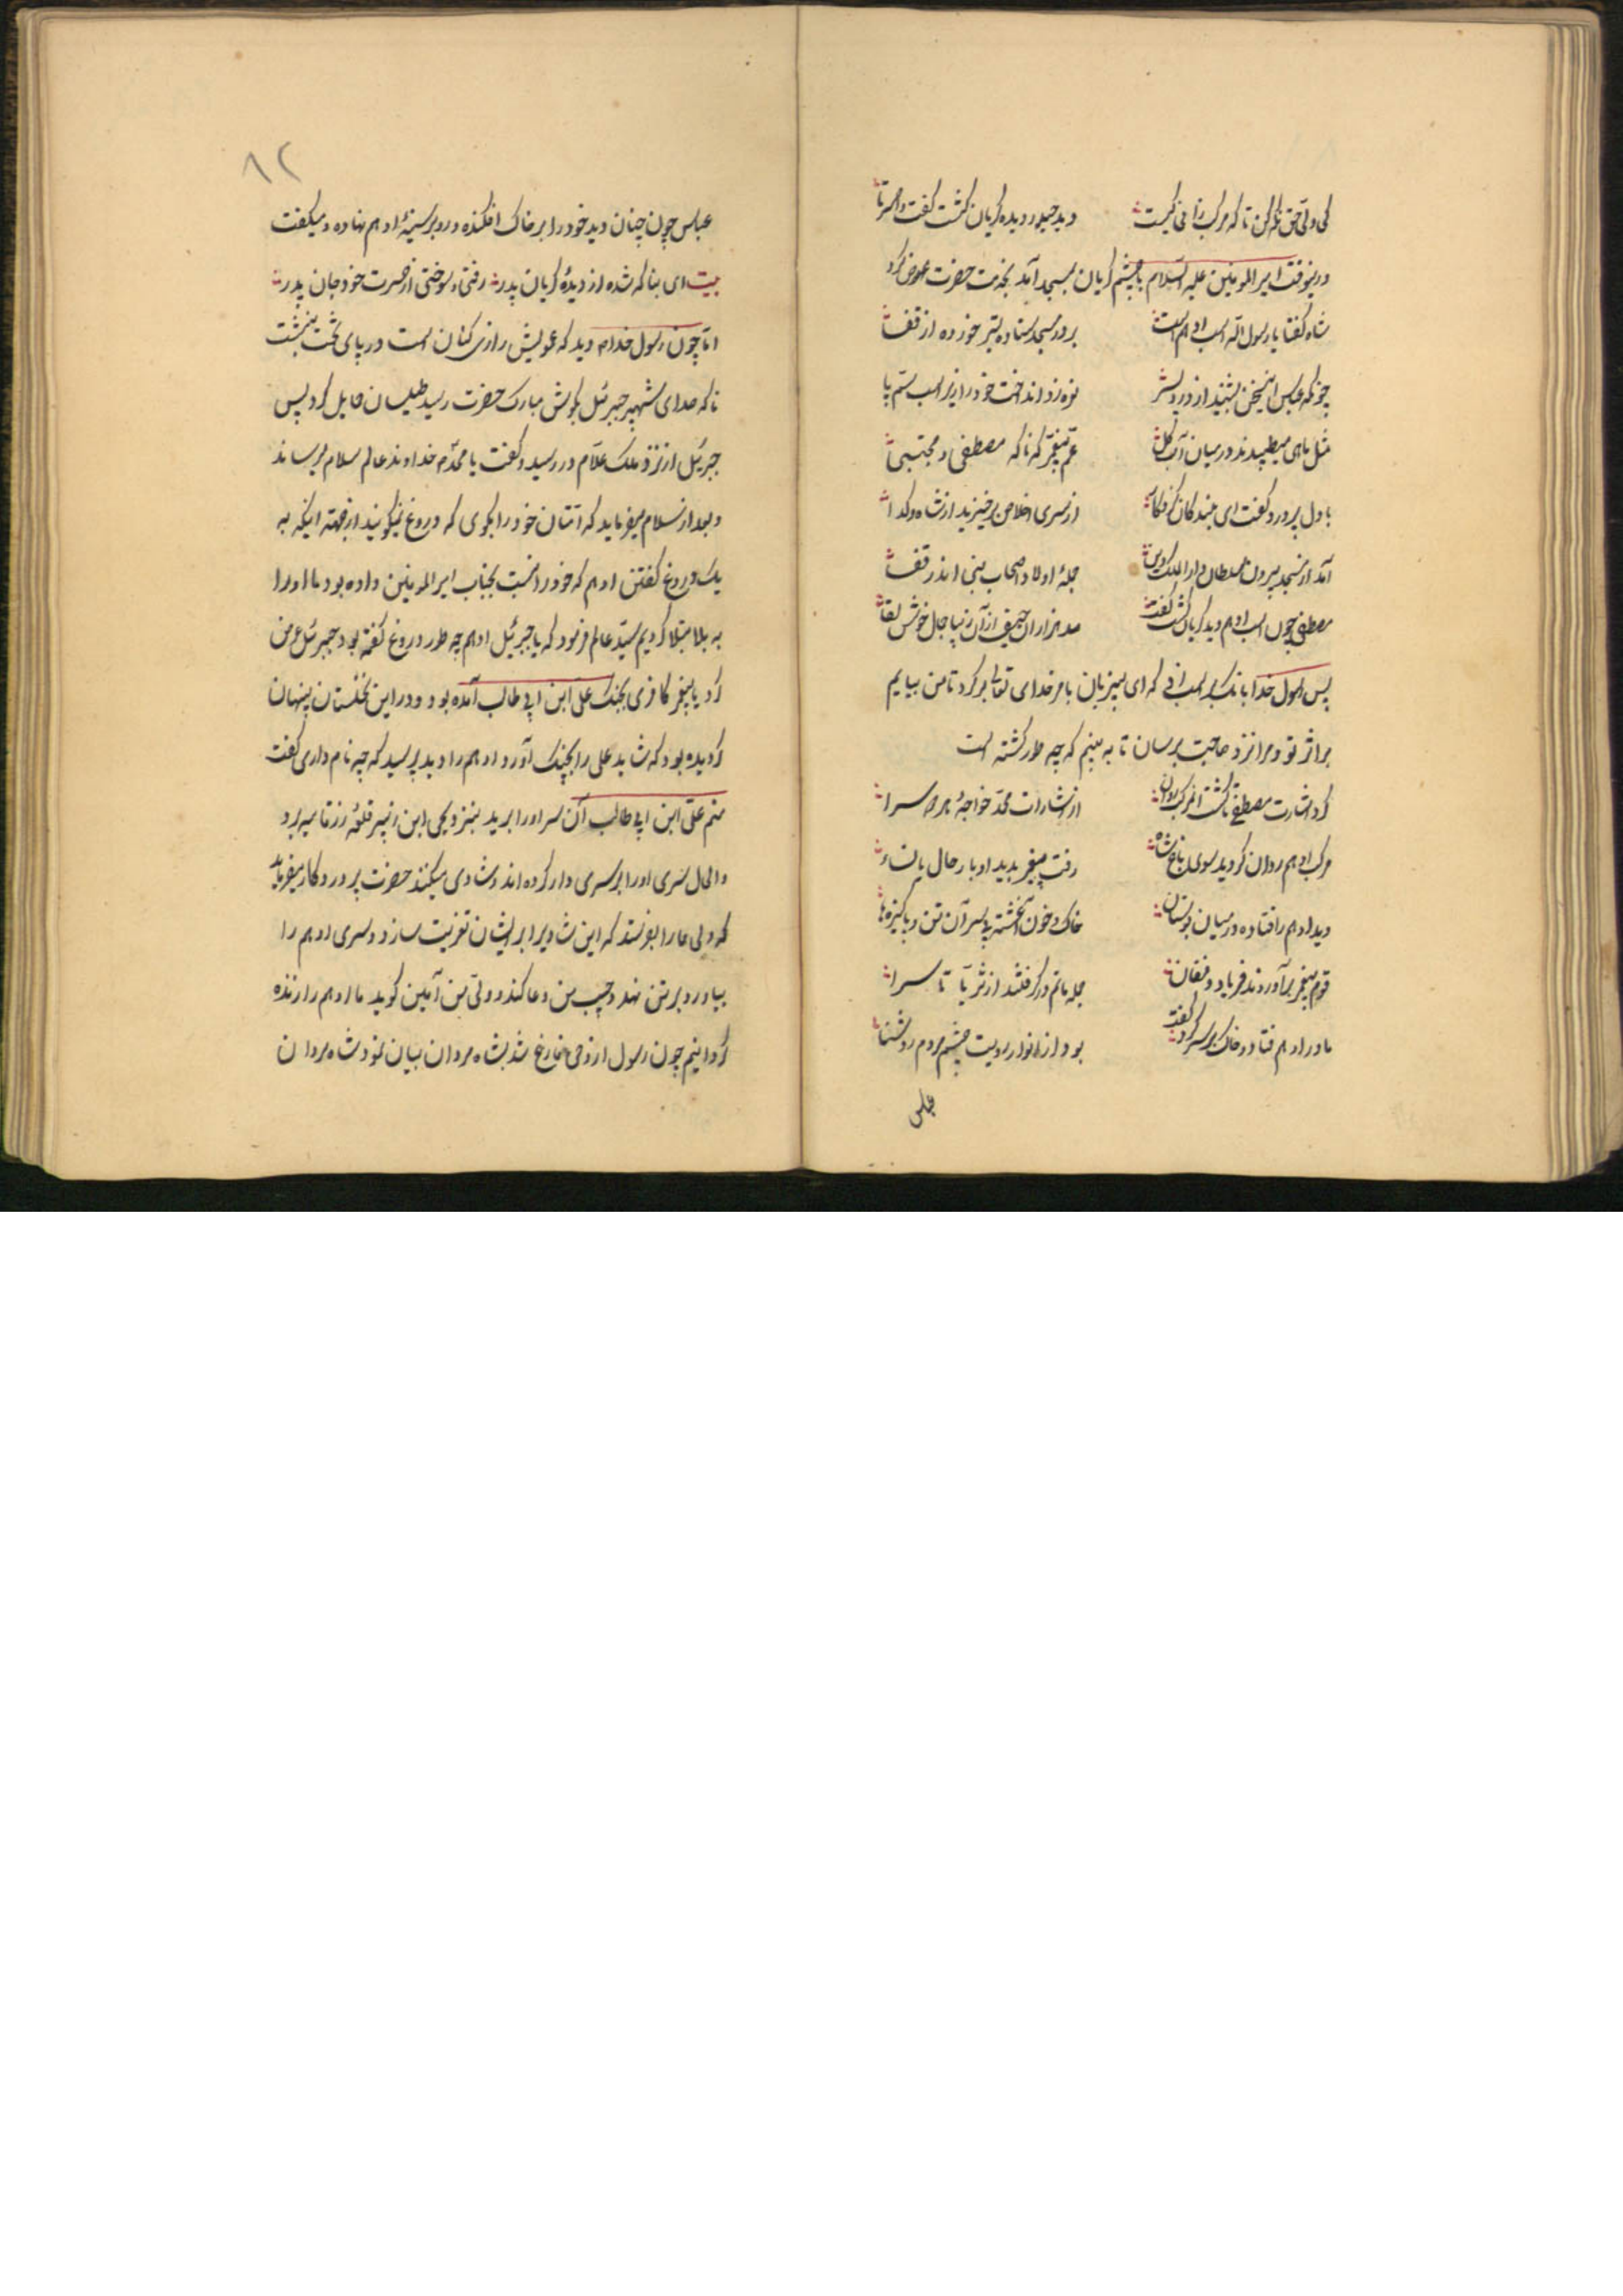 کی ولی حق نظر کن تا که مرکب زا فی کیست دید حیدر دیده گریان گشت گفت
درینوقت امیر المومنین علیه السلام با چشم گریان بمسجد آمد بخدمت حضرت عرض کرد
شاه گفتا یا رسول الله اسب ادهم است بر در مسجد ستاده تیر خورده از قفا
چونکه عباس این سخن بشنید از درد پسر نعره زد انداخت خود را زیر اسب ستم پا
مثل ماهی میطپیدند در میان آب گل عم پیغمبر که ناکه مصطفی و مجتبی
با دل پر درد گفت ای بندکان از سری اخلاص برخیزید از شاه و کدا
آمد از مسجد بیرون سلطان دار الملک دین جملهٔ اولاد اصحاب نبی اندر قفا
مصطفی چون اسب ادهم دید گریان گشت گفت صد هزاران حیف از آن زیبا جمال خوش لقا
پس رسول خدا بانک بر اسب زد که ای بیزبان بامر خدای تعالی برکرد تا من بیایم
براثر تو و مرا نزد صاحبت برسان تا به بینم که چه طور کشته است
کرد اشارت مصطفی تا گشت مرکب روان از اشارات محمد خواجهٔ هر دو سرا
مرکب ادهم روان گردید سوی باغ شاه رفت پیغمبر بدید او با رجال با نساء
دید ادهم را فتاده در میان بوستان خاک و خون آغشته بی سر آن تن و پاکیزه ها
قوم پیغمبر برآوردند فریاد و فغان جمله ماتم در گرفتند از ثریا تا سرا
مادر ادهم فتاد و خاک بر سر کرد گفت بود از انوار رویت چشم مردم روشنا
عباس
۸۲
عباس چون چنان دید خود را بر خاک افکنده و رو بر سینهٔ ادهم نهاده و میکفت
بیت ای بنا که شده از دیدهٔ گریان پدر رفتی و سوختی از حسرت خود جان پدر
اما چون رسول خدا دید که عمویش زاری کنان است در پای تخت بنشست
ناکه صدای شهپر جبرئیل بکوش مبارک حضرت رسید طیلسان حایل کرد پس
جبرئیل از نزد ملک علام در رسید و کفت یا محمد خداوند عالم سلام میرساند
و بعد از سلام میفرماید که امتان خود را بکوی که دروغ نکویند از جهته اینکه به
یک دروغ گفتن ادهم که خود را نسبت بجناب امیر المومنین داده بود ما او را
به بلا مبتلا کردیم سید عالم فرمود که یا جبرئیل ادهم چه طور دروغ گفته بود جبرئیل عرض
کرد یا پیغمبر کافری بجنک علی ابن ابی طالب آمده بود و در این نخلستان پنهان
کردیده بود که شاید علی را بچنک آورد ادهم را دید پرسید که چه نام داری کفت
منم علی ابن ابی طالب آن سر او را برید بنزد یحی ابن قلعه زرقا میبرد
و الحال سری او را بر سری دار کرده اند و شادی میکنند حضرت پروردکار میفرماید
که ولی ما را بفرستد که این شادیرا بر ایشان تعزیت سازد و سری ادهم را
بیاورد بر تن نهد و حبیب من دعا کند و ولی من آمین کوید ما ادهم را زنده
کردانیم چون رسول از وحی فارغ شد بشاه مردان بیان نمود شاه مردان